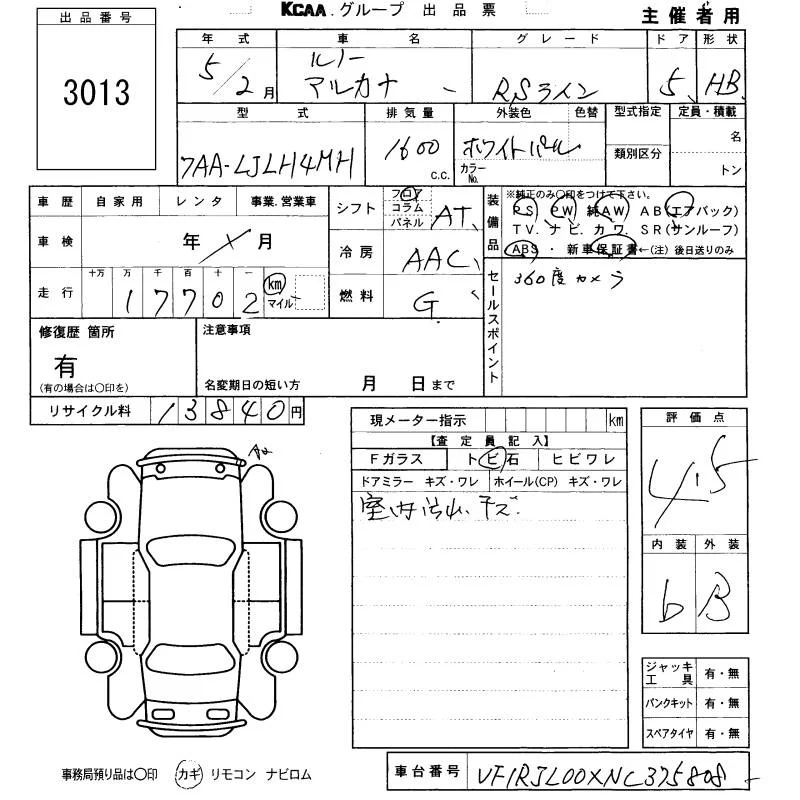 出品番号
3013
KCAA.グループ 出品票
主催者用
年式 車名 グレード ドア 形状
5/2月 ルノー マルカナ RSライン 5 HB
型式 排気量 外装色 色替 型式指定 定員・積載
7AA-LJLH4MH 1600 c.c. ホワイトパール カラーNo. 類別区分 名 トン
車歴 自家用 レンタ 事業.営業車
車検 年 月
走行 十万 万 千 百 十 一
17702 km マイル
シフト フロア コラム パネル AT
冷房 AAC
燃料 G
装備品
※純正のみ○印をつけて下さい。
PS PW 純AW AB(エアバック)
TV.ナビ.カワ.SR(サンルーフ)
ABS・新車保証書←(注)後日送りのみ
セールスポイント
360度カメラ
修復歴 箇所
有
(有の場合は○印を)
注意事項
名変期日の短い方 月 日まで
リサイクル料 13840円
現メーター指示 km
【査定員記入】
Fガラス トビ石 ヒビワレ
ドアミラー キズ・ワレ ホイール(CP) キズ・ワレ
室内汚れ.キズ.
評価点
4.5
内装 外装
b B
ジャッキ工具 有・無
パンクキット 有・無
スペアタイヤ 有・無
事務局預り品は○印 カギ リモコン ナビロム
車台番号 VF1RJL00XNC375808